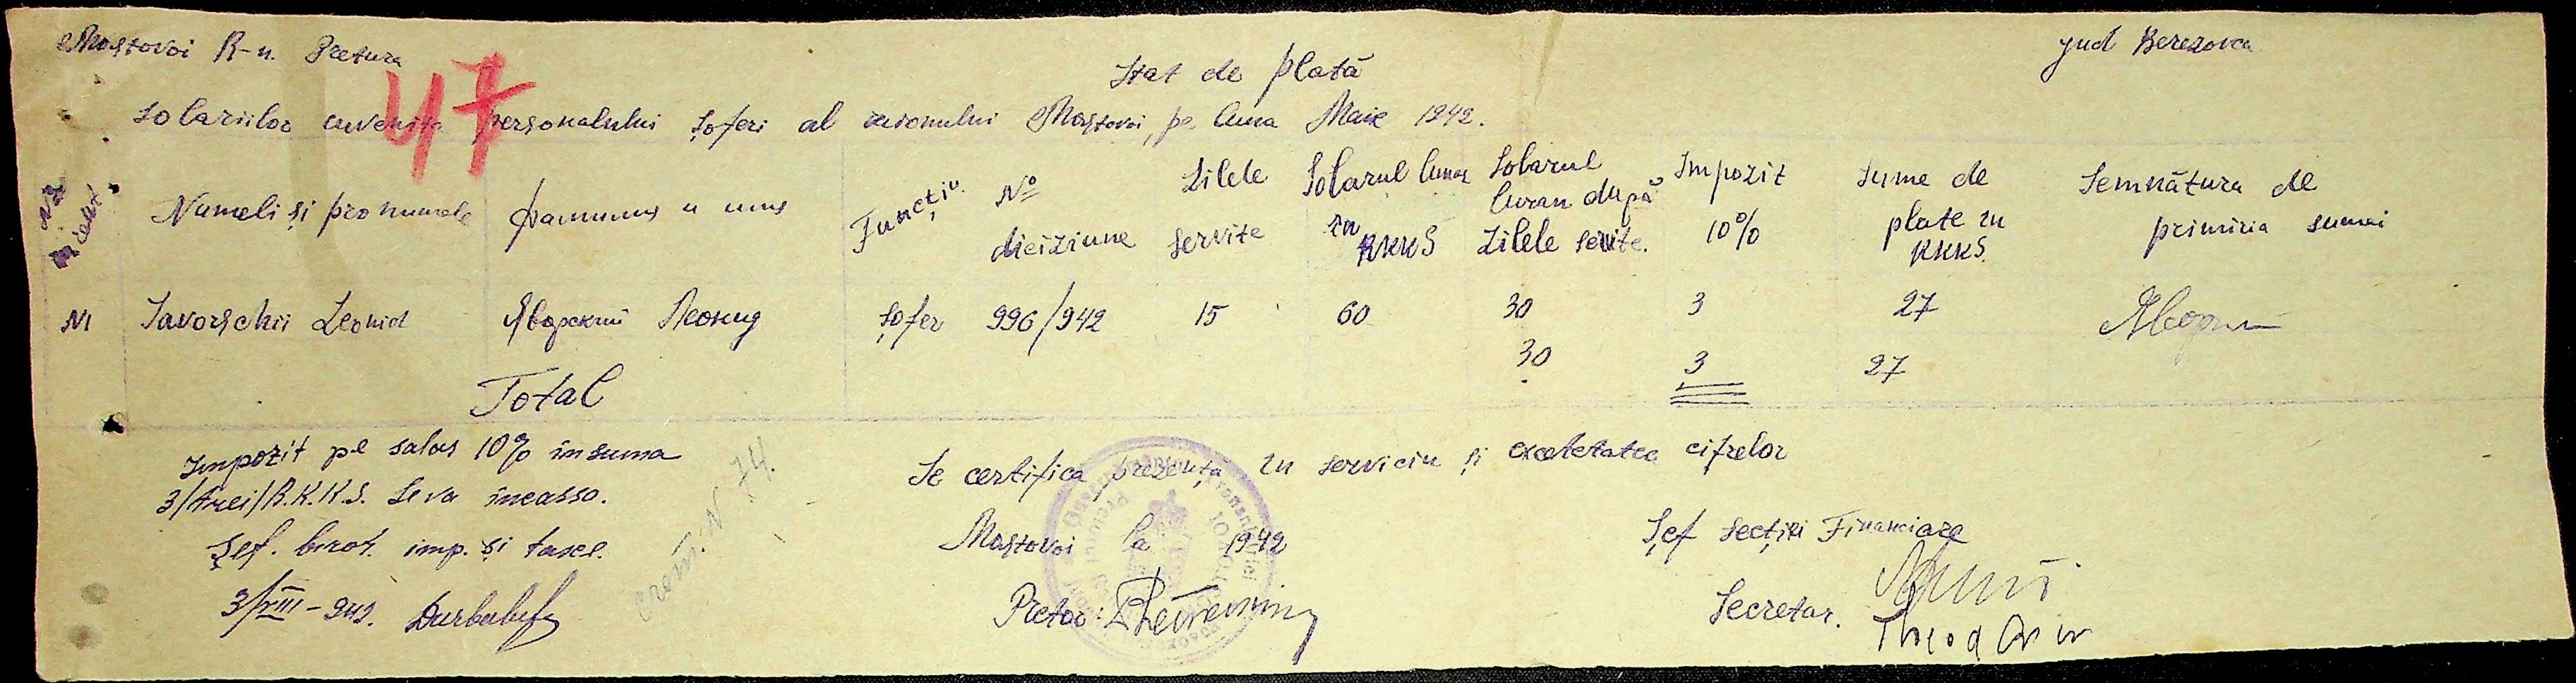 Mostovoi R-n. Pretura
jud Berezovca
47
Stat de plată
Solariilor cuvenite personalului șoferi al raionului Mostovoi, pe luna Maie 1942.
Numeli și pronumele
Фамилия и имя
Funcțiu.
No diciziune
Zilele servite
Solarul lunar în RKKS
Solarul luran după Zilele servite.
Impozit 10%
Sume de plate în RKKS.
Semnătura de primiria sumei
N1 Iavorschii Leonid Яворский Леонид șofer 996/942 15 60 30 3 27
Total 30 3 27
Impozit pe salar 10% în suma
3/trei/R.K.K.S. Seva incasso.
Șef. birot. imp. și taxel.
3/VIII-942.
Se certifica prezența în serviciu și exactetatea cifrelor
Mostovoi la 1942
Șef secției Financiare
Pretor:
Secretar.